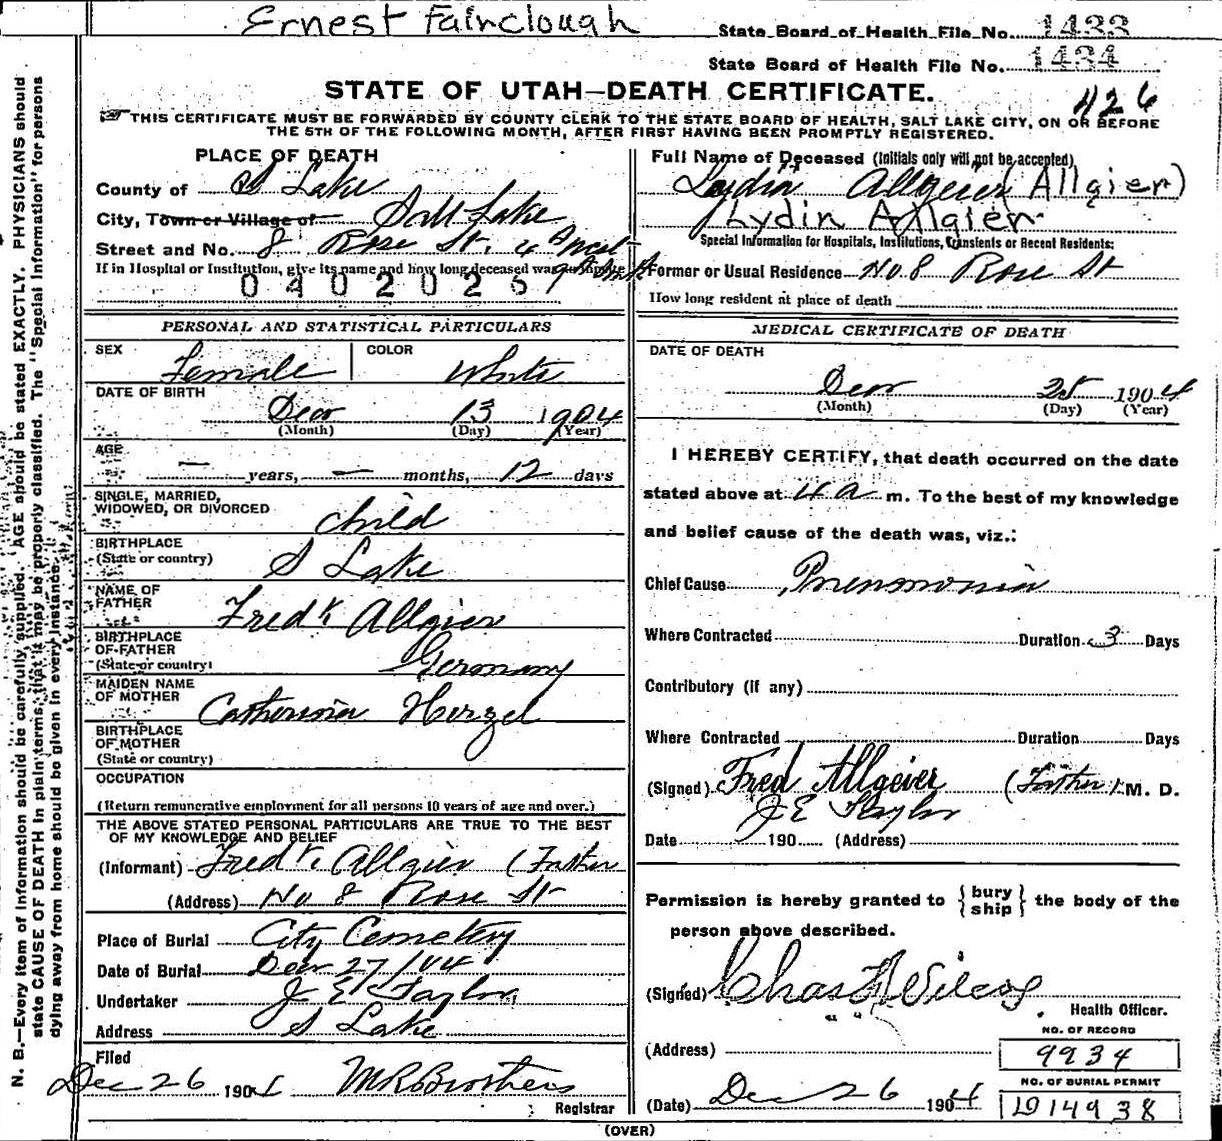 Ernest Fairclough
State Board of Health File No. 1433
State Board of Health File No. 1434
STATE OF UTAH—DEATH CERTIFICATE.
426
THIS CERTIFICATE MUST BE FORWARDED BY COUNTY CLERK TO THE STATE BOARD OF HEALTH, SALT LAKE CITY, ON OR BEFORE
THE 5TH OF THE FOLLOWING MONTH, AFTER FIRST HAVING BEEN PROMPTLY REGISTERED.
N. B.—Every item of information should be carefully supplied. AGE should be stated EXACTLY. PHYSICIANS should
state CAUSE OF DEATH in plain terms, that it may be properly classified. The "Special Information" for persons
dying away from home should be given in every instance.
PLACE OF DEATH
County of S Lake
City, Town or Village of Salt Lake
Street and No. 8 Rose St.
If in Hospital or Institution, give its name and how long deceased was
0402026
PERSONAL AND STATISTICAL PARTICULARS
SEX Female COLOR White
DATE OF BIRTH
Decr 13 1904
(Month) (Day) (Year)
AGE
— years, — months, 12 days
SINGLE, MARRIED,
WIDOWED, OR DIVORCED child
BIRTHPLACE
(State or country) S Lake
NAME OF
FATHER Fredk Allgier
BIRTHPLACE
OF FATHER
(State or country) Germany
MAIDEN NAME
OF MOTHER Catherina Herzel
BIRTHPLACE
OF MOTHER
(State or country)
OCCUPATION
(Return remunerative employment for all persons 10 years of age and over.)
THE ABOVE STATED PERSONAL PARTICULARS ARE TRUE TO THE BEST
OF MY KNOWLEDGE AND BELIEF
(Informant) Fredk. Allgier (Father
(Address) No 8 Rose St
Place of Burial City Cemetery
Date of Burial Decr 27/04
Undertaker J E Taylor
Address S Lake
Filed
Dec 26 1904 M R Brothers
Registrar
Full Name of Deceased (Initials only will not be accepted)
Lydia Allgeier (Allgier)
Lydin Allgier
Special Information for Hospitals, Institutions, Transients or Recent Residents:
Former or Usual Residence No. 8 Rose St
How long resident at place of death
MEDICAL CERTIFICATE OF DEATH
DATE OF DEATH
Decr 25 1904
(Month) (Day) (Year)
I HEREBY CERTIFY, that death occurred on the date
stated above at 4 a m. To the best of my knowledge
and belief cause of the death was, viz.:
Chief Cause Pneumonia
Where Contracted Duration 3 Days
Contributory (if any)
Where Contracted Duration Days
(Signed) Fred Allgeier (Father) M. D.
J E Taylor
Date 190 (Address)
Permission is hereby granted to { bury ship } the body of the
person above described.
(Signed) Chas F Wilcox
Health Officer.
(Address)
NO. OF RECORD
9934
NO. OF BURIAL PERMIT
D14938
(Date) Dec 26 1904
(OVER)